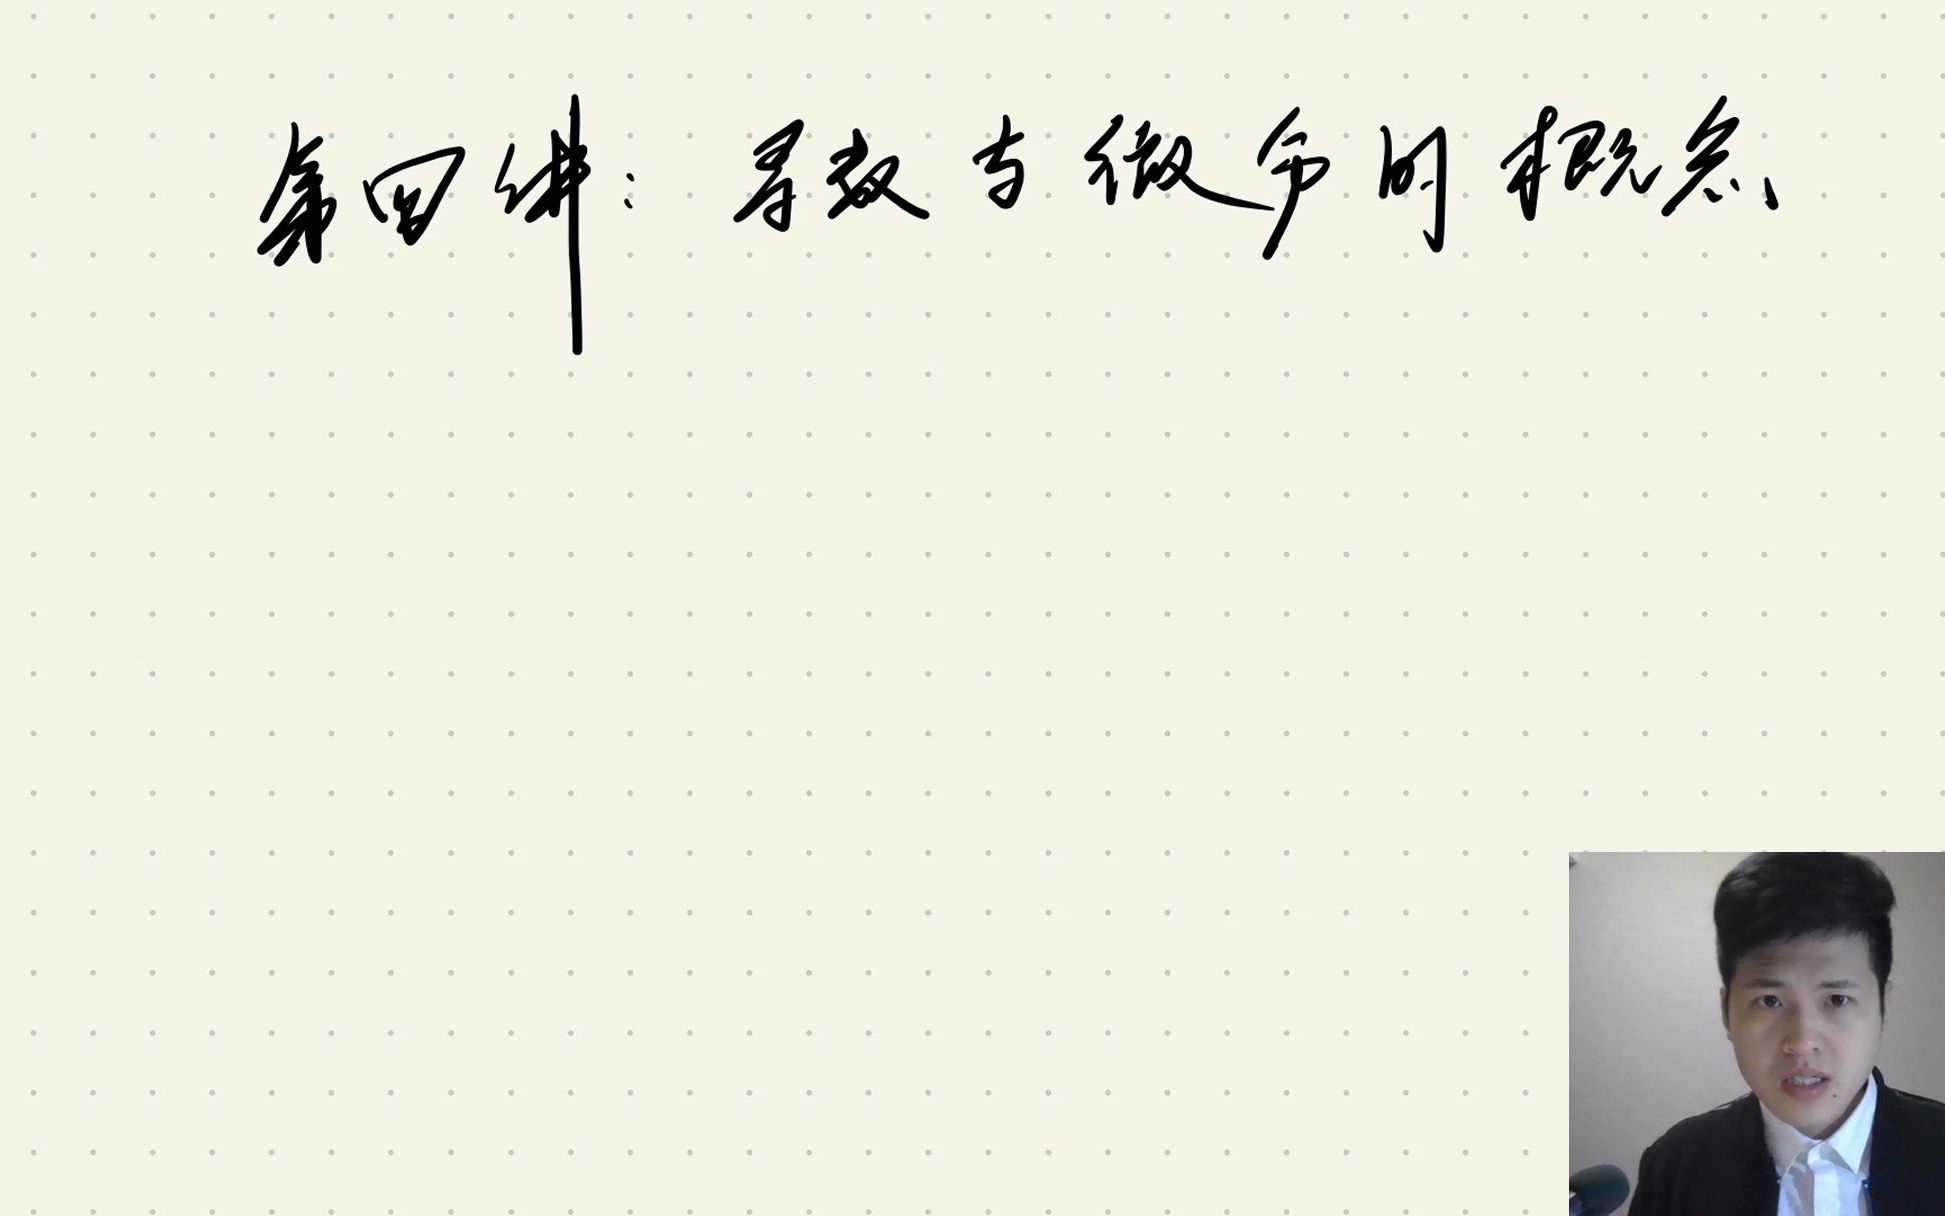 第四讲：导数与微分的概念、